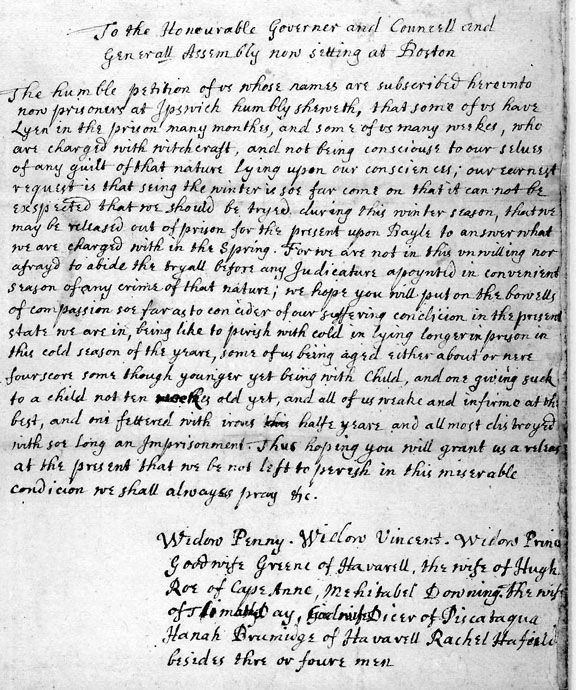 To the Honourable Governer and Councell and
Generall Assembly now setting at Boston
The humble petition of us whose names are subscribed hereunto
now prisoners at Ipswich humbly sheweth, that some of us have
Lyen in the prison many monthes, and some of us many weekes, who
are charged with witchcraft, and not being consciouse to our selves
of any guilt of that nature lying upon our consciences; our earnest
request is that seing the winter is soe far come on that it can not be
exspected that we should be tryed during this winter season, that we
may be released out of prison for the present upon Bayle to answer what
we are charged with in the Spring. For we are not in this unwilling nor
afrayd to abide the tryall before any Judicature apoynted in convenient
season of any crime of that nature; we hope you will put on the bowells
of compassion soe far as to concider of our suffering condicion in the present
state we are in, being like to perish with cold in lying longer in pryson in
this cold season of the yeare, some of us being aged either about or nere
fourscore some though younger yet being with Child, and one giving suck
to a child not ten weekes old yet, and all of us weake and infirme at the
best, and one fettered with irons this halfe yeare and allmost distroyed
with soe long an Imprisonment. Thus hoping you will grant us a releas
at the present that we be not left to perish in this miserable
condicion we shall alwayes pray &c.
Widow Penny. Widow Vincent. Widow Prince
Goodwife Greene of Havarell, the wife of Hugh
Roe of Cape Anne, Mehitabel Downing. the wife
of Day, Dicer of Piscataqua
Hanah Brumidge of Havarell Rachel
besides thre or foure men